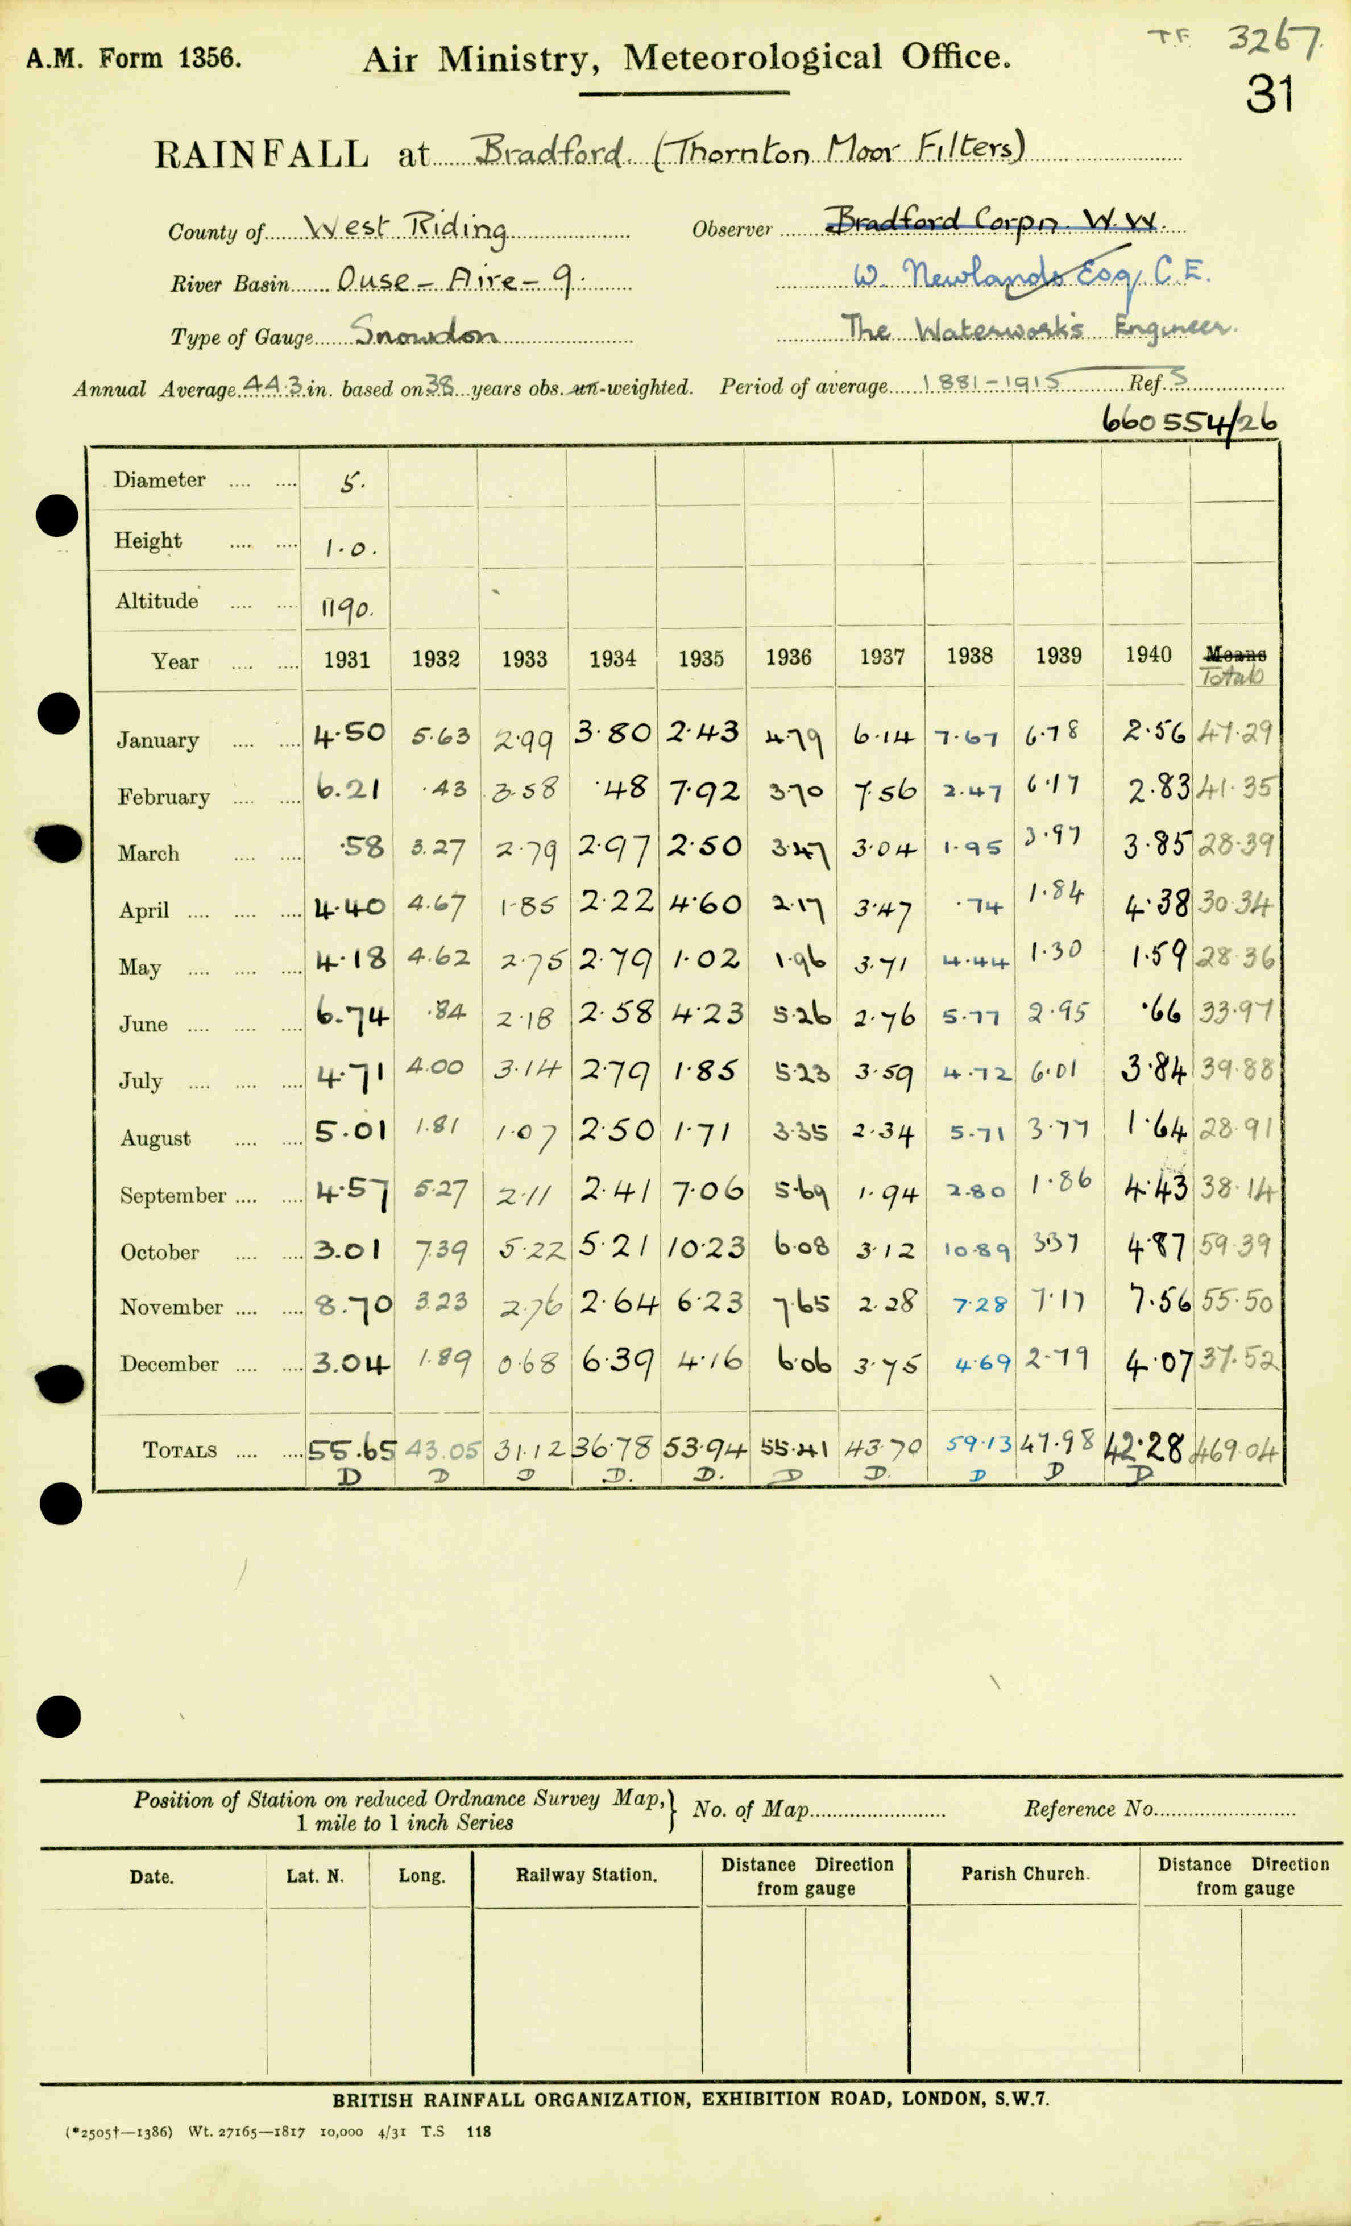 T.F. 3267.
A.M. Form 1356. Air Ministry, Meteorological Office.
31
RAINFALL at Bradford. (Thornton Moor Filters)
County of West Riding Observer Bradford Corpn. W.W.
River Basin Ouse - Aire - 9. W. Newlands Esq. C.E.
Type of Gauge Snowdon The Waterworks Engineer.
Annual Average 44.3 in. based on 38 years obs. un-weighted. Period of average 1881-1915 Ref. S
660554/26
Diameter .... .... 5.
Height .... .... 1.0.
Altitude .... .... 1190.
Year .... .... 1931 1932 1933 1934 1935 1936 1937 1938 1939 1940 Means
Totals
January .... .... 4.50 5.63 2.99 3.80 2.43 4.79 6.14 7.67 6.78 2.56 47.29
February .... .... 6.21 .43 3.58 .48 7.92 3.70 7.56 2.47 6.17 2.83 41.35
March .... .... .58 3.27 2.79 2.97 2.50 3.47 3.04 1.95 3.97 3.85 28.39
April .... .... .... 4.40 4.67 1.85 2.22 4.60 2.17 3.47 .74 1.84 4.38 30.34
May .... .... .... 4.18 4.62 2.75 2.79 1.02 1.96 3.71 4.44 1.30 1.59 28.36
June .... .... .... 6.74 .84 2.18 2.58 4.23 5.26 2.76 5.77 2.95 .66 33.97
July .... .... .... 4.71 4.00 3.14 2.79 1.85 5.23 3.59 4.72 6.01 3.84 39.88
August .... .... 5.01 1.81 1.07 2.50 1.71 3.35 2.34 5.71 3.77 1.64 28.91
September .... .... 4.57 5.27 2.11 2.41 7.06 5.69 1.94 2.80 1.86 4.43 38.14
October .... .... 3.01 7.39 5.22 5.21 10.23 6.08 3.12 10.89 3.37 4.87 59.39
November .... .... 8.70 3.23 2.76 2.64 6.23 7.65 2.28 7.28 7.17 7.56 55.50
December .... .... 3.04 1.89 0.68 6.39 4.16 6.06 3.75 4.69 2.79 4.07 37.52
TOTALS .... .... 55.65 43.05 31.12 36.78 53.94 55.41 43.70 59.13 47.98 42.28 469.04
D D D D. D. D D. D D D
Position of Station on reduced Ordnance Survey Map, } No. of Map Reference No.
1 mile to 1 inch Series
Date. Lat. N. Long. Railway Station. Distance Direction Parish Church. Distance Direction
from gauge from gauge
BRITISH RAINFALL ORGANIZATION, EXHIBITION ROAD, LONDON, S.W.7.
(*2505†—1386) Wt. 27165—1817 10,000 4/31 T.S 118